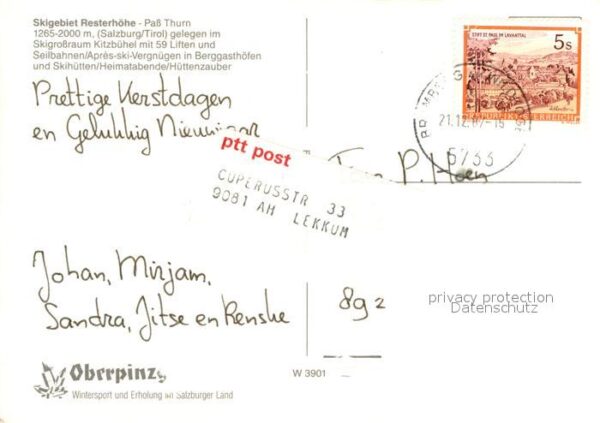 Skigebiet Resterhöhe - Paß Thurn
1265-2000 m, (Salzburg/Tirol) gelegen im
Skigroßraum Kitzbühel mit 59 Liften und
Seilbahnen/Après-ski-Vergnügen in Berggasthöfen
und Skihütten/Heimatabende/Hüttenzauber
Prettige Kerstdagen
en Gelukkig Nieuwjaar
STIFT ST. PAUL IM LAVANTTAL
5 S
REPUBLIK ÖSTERREICH
21.12.87-15
5733
ptt post
CUPERUSSTR 33
9081 AH LEKKUM
Fam P. Hoen
Johan, Mirjam,
Sandra, Jitse en Renske
892
privacy protection
Datenschutz
Oberpinz
Wintersport und Erholung im Salzburger Land
W 3901